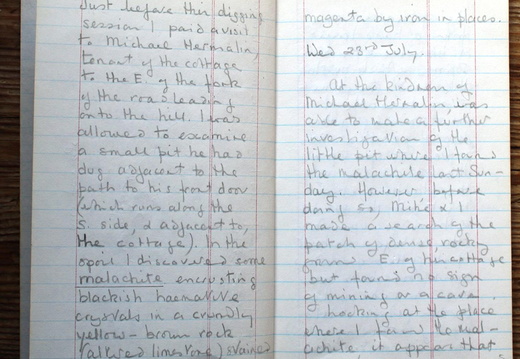 Just before this digging
session I paid a visit
to Michael Hermalin,
tenant of the cottage
to the E. of the fork
of the road leading
onto the hill. I was
allowed to examine
a small pit he had
dug adjacent to the
path to his front door
(which runs along the
S. side, & adjacent to,
the cottage). In the
spoil I discovered some
malachite encrusting
blackish haematite
crystals in a crumbly
yellow-brown rock
(altered limestone) stained
magenta by iron in places.
Wed 23rd July.
At the kindness of
Michael Hermalin was
able to make a further
investigation of the
little pit where I found
the malachite last Sun-
day. However before
doing so, Mike & I
made a search of the
patch of dense, rocky
E. of his cottage
but found no sign
of mining or a cave.
Looking at the place
where I found the mal-
achite it appears that